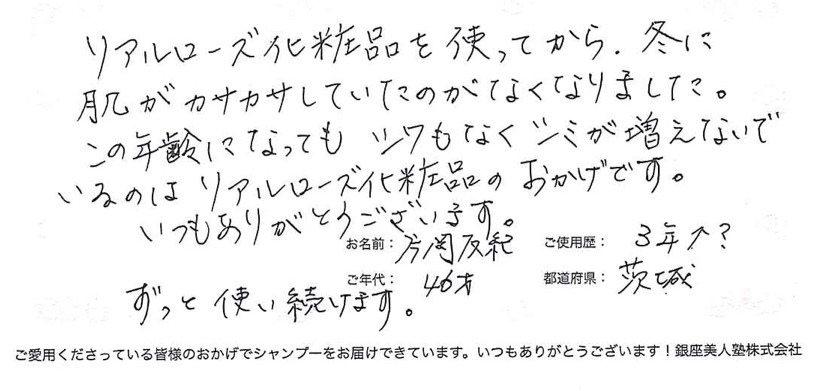 リアルローズ化粧品を使ってから、冬に
肌がカサカサしていたのがなくなりました。
この年齢になっても シワもなくシミが増えないで
いるのはリアルローズ化粧品のおかげです。
いつもありがとうございます。
お名前： 片岡友紀 ご使用歴： 3年↑？
ご年代： 46才 都道府県： 茨城
ずっと使い続けます。
ご愛用くださっている皆様のおかげでシャンプーをお届けできています。いつもありがとうございます！銀座美人塾株式会社